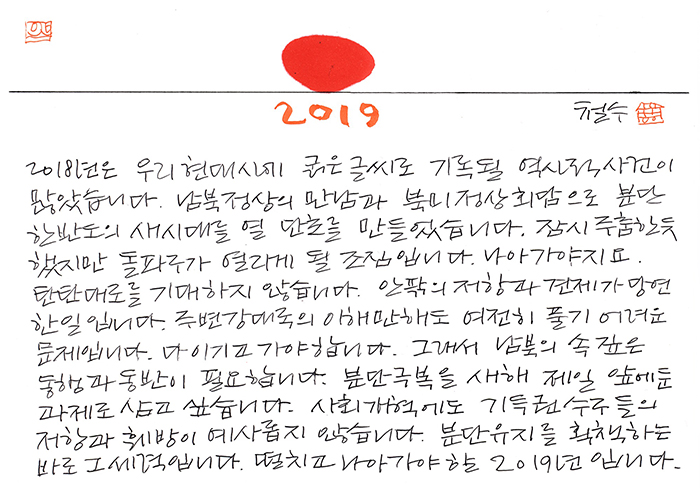 2019
철수
2018년은 우리 현대사에 굵은 글씨로 기록될 역사적 사건이
많았습니다. 남북정상의 만남과 북미정상회담으로 분단
한반도의 새시대를 열 단초를 만들었습니다. 잠시 주춤한듯
했지만 돌파구가 열리게 될 조짐입니다. 나아가야지요.
탄탄대로를 기대하지 않습니다. 안팎의 저항과 견제가 당연
한일입니다. 주변강대국의 이해만해도 여전히 풀기 어려운
문제입니다. 다 이기고 가야합니다. 그래서 남북의 속 깊은
동행과 동반이 필요합니다. 분단극복을 새해 제일 앞에둔
과제로 삼고 싶습니다. 사회개혁에도 기득권수구들의
저항과 훼방이 예사롭지 않습니다. 분단유지를 획책하는
바로 그 세력입니다. 떨치고 나아가야 할 2019년입니다.